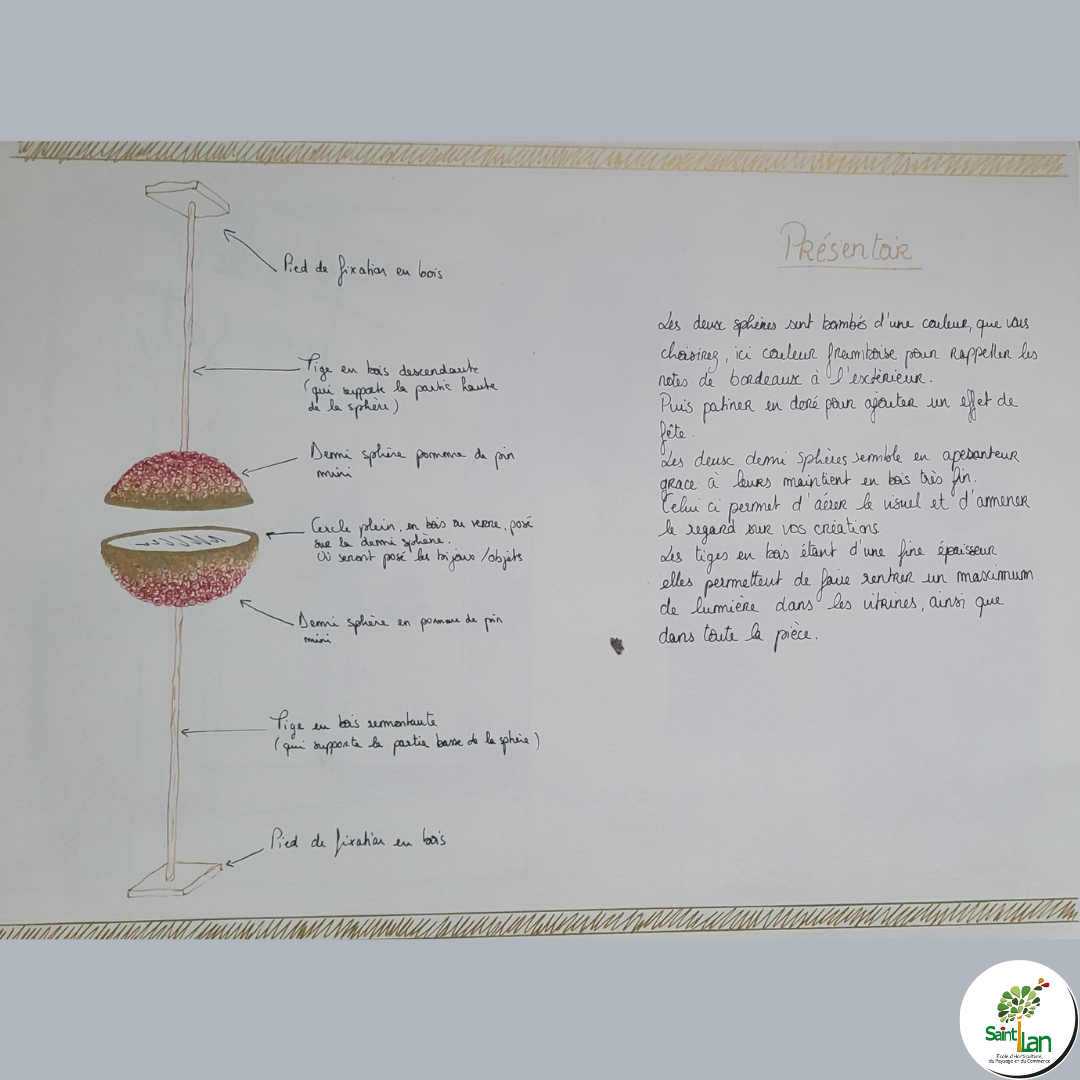 Pied de fixation en bois
Tige en bois descendante
(qui supporte la partie haute
de la sphère)
Demi sphère pomme de pin
mini
Cercle plein, en bois ou verre, posé
sur la demi sphère.
Où seront posé les bijoux/objets
Demi sphère en pomme de pin
mini
Tige en bois remontante
(qui supporte la partie basse de la sphère)
Pied de fixation en bois
Présentoir
Les deux sphères sont bombés d'une couleur, que vous
choisirez, ici couleur framboise pour rappeller les
notes de bordeaux à l'extérieur.
Puis patiner en doré pour ajouter un effet de
fête.
Les deux demi sphères semble en apesanteur
grace à leurs maintient en bois très fin.
Celui ci permet d'aérer le visuel et d'ammener
le regard sur vos créations
Les tiges en bois étant d'une fine épaisseur
elles permettent de faire rentrer un maximum
de lumière dans les vitrines, ainsi que
dans toute la pièce.
Saint Ilan
Ecole d'Horticulture,
du Paysage et du Commerce